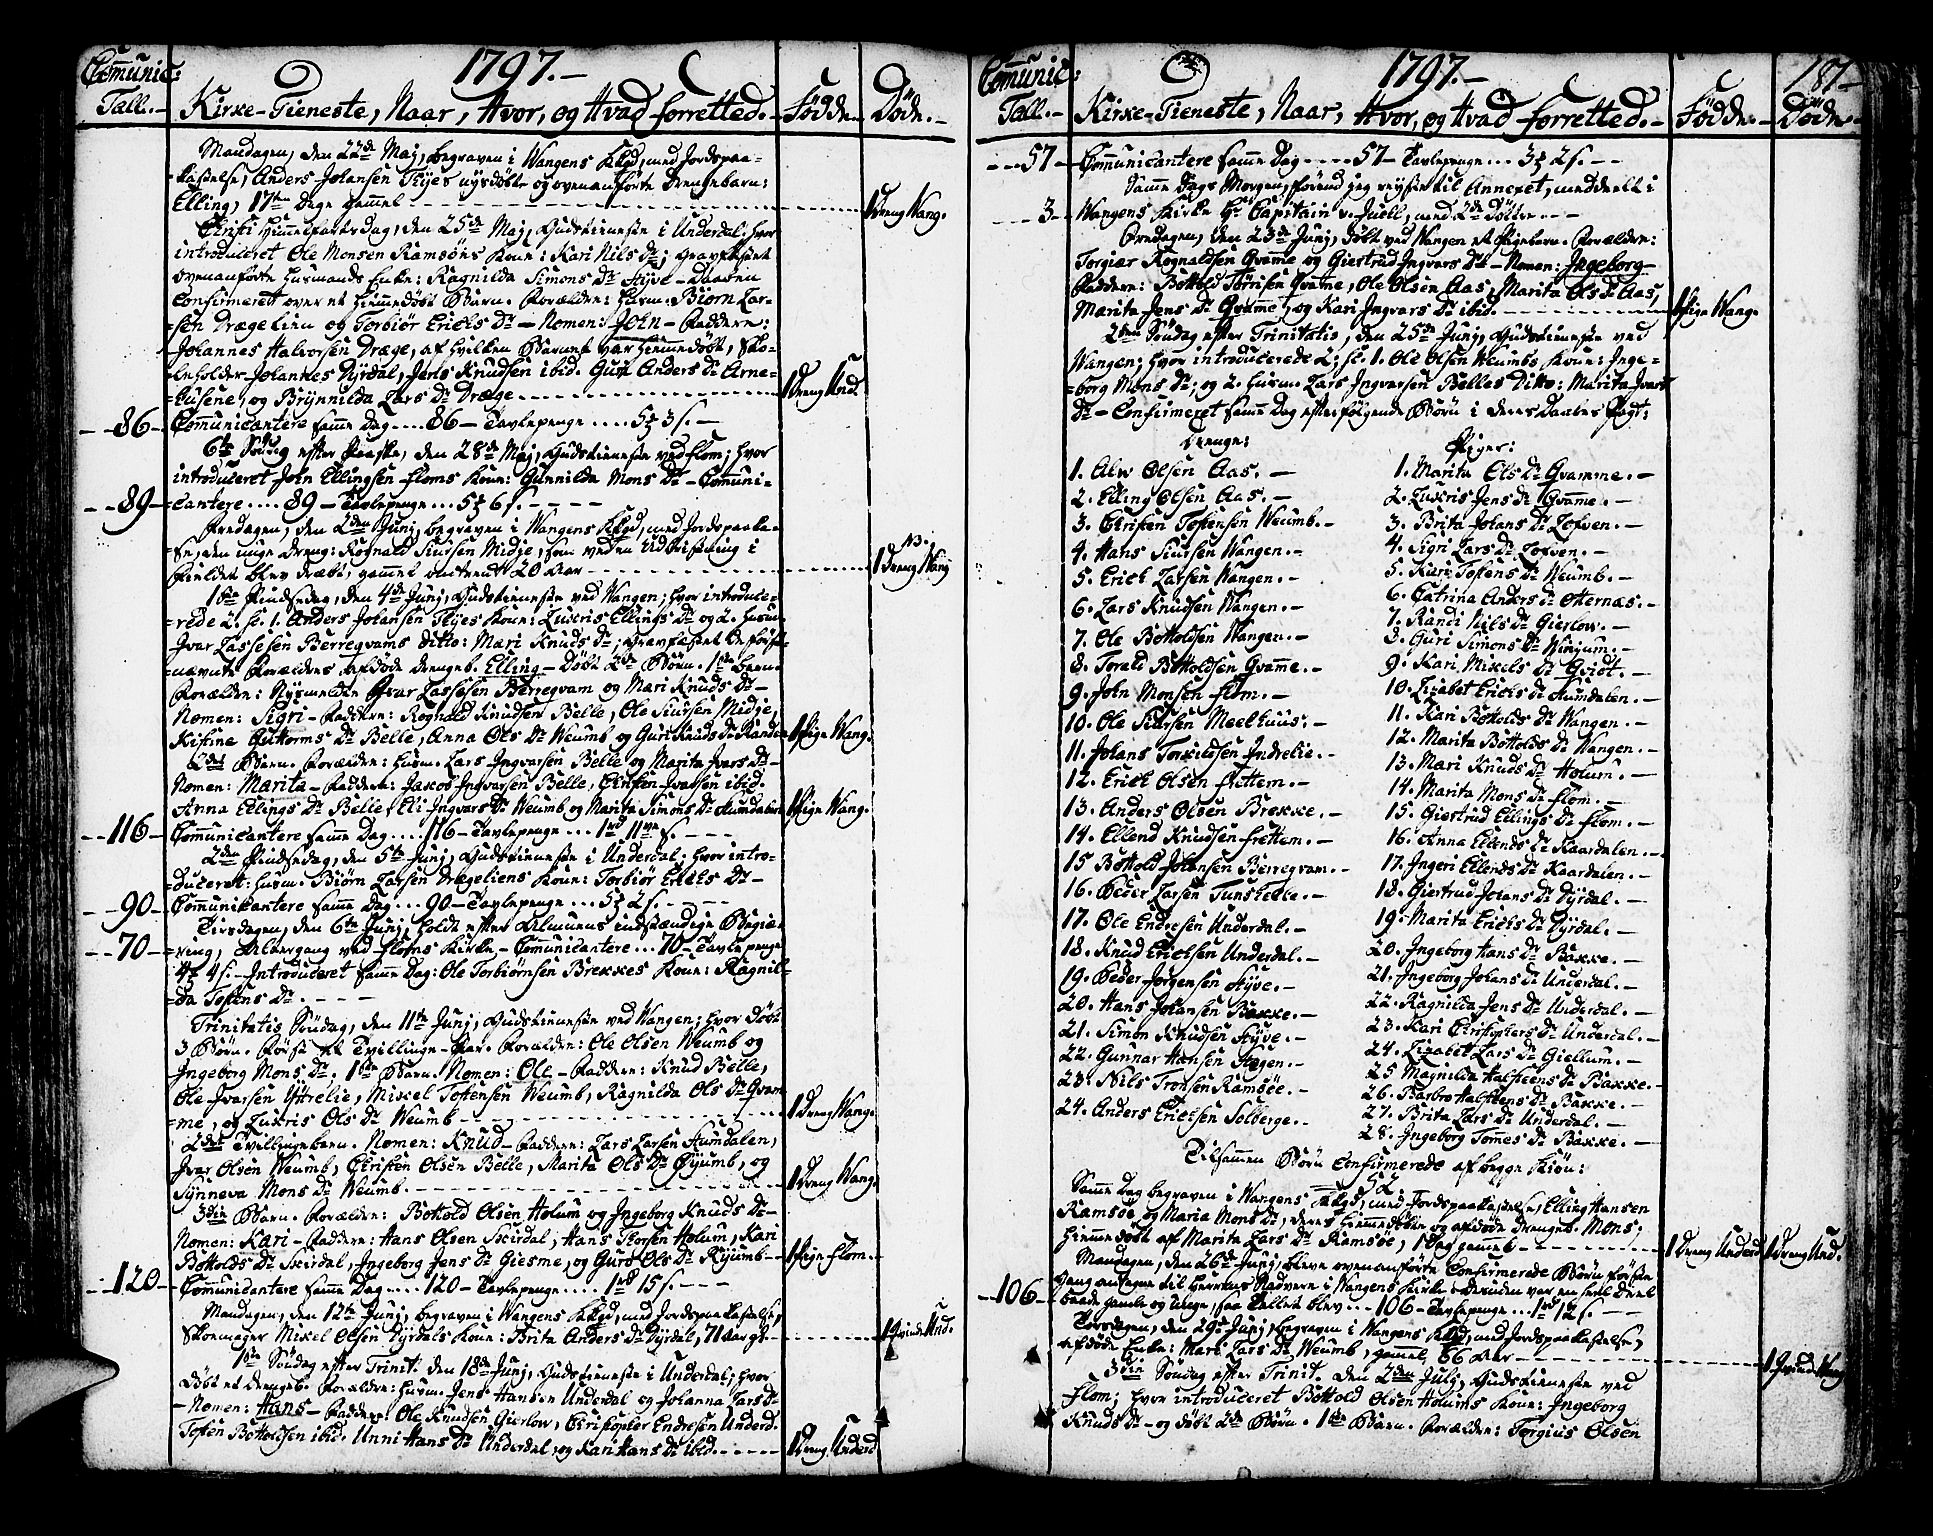 Comunic:
1797.-
Tall.-
Kirke-Tieneste, Naar, Hvor, og Hvad forretted.-
Födde.-
Döde.-
Mandagen, den 22de Maj, begraven i Wangens Kkgd, med Jordspaa-
=kastelse, Anders Johansen Styes nysdöbte og ovenanförte Drengebarn:
Elling, 17ten Dage gammel
1 Dreng Wang.
Christi Himmelfartsdag, den 25de Maj, Gudstieneste i Underdal, hvor
introduceret Ole Monsen Ramsöns Kone: Kari Nils Dr; Gravfæstet
ovenanförte Husmands Enke: Ragnilda Simons Dr Styve - Daaben
Confirmeret over et Hiemmedöbt Barn. Forældre: Husm. Biörn Lar-
=sen Drægelien og Torbiör Erichs Dr - Nomen: John - Faddere:
Johannes Halvorsen Dræge, af hvilken Barnet var hiemmedöbt, Sko-
=leholder Johannes Dyrdal, Jerls Knudsen ibid. Guri Anders Dr Arne-
=husene, og Brynnilda Lars Dr Dræge
1 Dreng Und.
86
Comunicantere samme Dag .... 86 - Tavlepenge .... 5 3 s. -
6te Söndag efter Paaske, den 28de Maj, Gudstieneste ved Flom; hvor
introduceret John Ellingsen Floms Kone: Gunnilda Mons Dr - Comuni-
89
=cantere .... 89 - Tavlepenge .... 5 6 s.
Fredagen, den 2den Junj, begraven i Wangens Kkgd, med Jordspaakastel-
=se, den unge Dreng: Rognald Siursen Midje, som ved en Udskifning i
Fieldet blev dræbt, gammel omtrent 20 Aar
NB.
1 Dreng Wang
1ste Pindsedag, den 4de Junj, Gudstieneste ved Wangen; hvor introduce-
=rede 2: sc. 1. Anders Johansen Styes Kone: Luxris Ellings Dr og 2. Husm.
Ivar Lassesen Berregvams ditto: Mari Knuds Dr; Gravfæstet de först-
=nævnte Forældres afdöde Drengeb. Elling - Döbt 2de Börn. 1ste Barn.
Forældre: Nysmeldte Ivar Lassesen Berregvam og Mari Knuds Dr -
Nomen: Sigri - Faddere: Rognald Knudsen Belle, Ole Siursen Midje,
Kistine Guttorms Dr Belle, Anna Ols Dr Weumb og Guri Knuds Dr Randen
1 Pige Wang.
2det Barn. Forældre: Husm. Lars Ingvarsen Belle og Marita Ivars Dr -
Nomen: Marita - Faddere: Jakob Ingvarsen Belle, Christen Ivarsen ibid.
Anna Ellings Dr Belle, Eli Ingvars Dr Weumb og Marita Simons Dr Humdalen
1 Pige Wang.
116
Comunicantere samme Dag .... 116 - Tavlepenge ... 1 rd 11 s.
2den Pindsedag, den 5te Junj, Gudstieneste i Underdal; hvor intro-
=duceret: Husm. Biörn Larsen Drægeliens Kone: Torbiör Erichs Dr -
90
Comunicantere samme Dag ... 90 - Tavlepenge ... 5 2 s.
Tirsdagen, den 6te Junj, holdt efter Almuens indstændige Begiæ-
70
=ring, Altergang ved Floms Kirke - Comunicantere ... 70 - Tavlepenge
4 4 s. - Introduceret samme Dag: Ole Torbiörnsen Brekkes Kone: Ragnil-
=da Tostens Dr.
Trinitatis Söndag, den 11te Junj, Gudstieneste ved Wangen; hvor döbt
3 Börn. Först et Tvillinge-Par. Forældre: Ole Olsen Weumb og
Ingeborg Mons Dr. 1ste Barn. Nomen: Ole - Faddere: Knud Belle,
Ole Ivarsen Ytrelie, Mikel Tostensen Weumb, Ragnilda Ols Dr Gvam-
=me, og Luxris Ols Dr Weumb
1 Dreng Wang.
2det Tvillingebarn. Nomen: Knud - Faddere: Lars Larsen Humdalen,
Ivar Olsen Weumb, Christen Olsen Belle, Marita Ols Dr Öyumb, og
Synneva Mons Dr Weumb.
1 Dreng Wang.
3die Barn. Forældre: Bottold Olsen Holum og Ingeborg Knuds Dr -
Nomen: Kari - Faddere: Hans Olsen Skirdal, Hans Thorsen Holum, Kari
Bottolds Dr Skirdal, Ingeborg Jens Dr Giesme, og Guro Ols Dr Ryumb
1 Pige Flom.
120
Comunicantere samme Dag .... 120 - Tavlepenge .... 1 rd 15 s.
Mandagen, den 12te Junj, begraven i Wangens Kkgd, med Jordspaakastelse,
Skomager Mikel Olsen Dyrdals Kone: Brita Anders Dr Dyrdal, 71 Aar gl.
1 Qvinde Und.
1ste Söndag efter Trinit. den 18de Junj, Gudstieneste i Underdal; hvor
döbt et Drengeb. Forældre: Husm. Jens Hansen Underdal og Johanna Lars Dr
- Nomen: Hans - Faddere: Ole Knudsen Gierlow, Christopher Endresen Underd.
Tosten Bottoldsen ibid. Unni Hans Dr Underdal, og Kari Hans Dr ibid.
1 Dreng Underd
Comunic:
1797.-
187-
Tall.-
Kirke-Tieneste, Naar, Hvor, og Hvad forretted.-
Födde.-
Döde.-
57
Comunicantere samme Dag ..... 57 - Tavlepenge ... 3 2 s.
Samme Dags Morgen, förend jeg reyste til Annexet, meddeelt i
3
Wangens Kirke Hr Capitain v. Juell, med 2de Döttre
Fredagen, den 23de Junj, döbt ved Wangen et Pigebarn. Forældre:
Torgiær Rognaldsen Gvamme og Giertrud Ingvars Dr - Nomen: Ingeborg
Faddere: Bottold Torrisen Gvamme, Ole Olsen Aas, Marita Ols Dr Aas,
Marita Jens Dr Gvamme, og Kari Ingvars Dr ibid.
1 Pige Wang.
2den Söndag efter Trinitatis, den 25de Junj, Gudstieneste ved
Wangen; hvor introducerede 2: sc. 1. Ole Olsen Weumbs Kone: Inge-
=borg Mons Dr; og 2. Husm. Lars Ingvarsen Belles Ditto: Marita Ivars
Dr - Confirmeret samme Dag efterfölgende Börn i deres Daabes Pagt:
Drenge:
1. Alv Olsen Aas.-
2. Elling Olsen Aas.-
3. Christen Tostensen Weumb.-
4. Hans Siursen Wangen.-
5. Erich Larsen Wangen.-
6. Lars Knudsen Wangen.-
7. Ole Bottoldsen Wangen.-
8. Torald Bottoldsen Gvamme.-
9. John Monsen Flom.-
10. Ole Siursen Meelhuus.-
11. Johans Torkildsen Indrelie.-
12. Erich Olsen Frettem.-
13. Anders Olsen Brekke.-
14. Ellend Knudsen Frettem.-
15. Bottold Johansen Berregvam.-
16. Peder Larsen Tunshelle.-
17. Ole Endresen Underdal.-
18. Knud Erichsen Underdal.-
19. Peder Jörgensen Styve.-
20. Hans Johansen Bakke.-
21. Simon Knudsen Styve.-
22. Gunnar Hansen Hagen.-
23. Nils Tronsen Ramsöe.-
24. Anders Erichsen Solberge.-
Piger:
1. Marita Ols Dr Gvamme.-
2. Luxris Jens Dr Gvamme.-
3. Brita Johans Dr Lofven.-
4. Sigri Lars Dr Lofven.-
5. Kari Tostens Dr Weumb.-
6. Catrina Anders Dr Otternæs.-
7. Randi Nils Dr Gierlow.-
8. Guri Simons Dr Winjum.-
9. Kari Mikels Dr Gvidt.-
10. Lizabet Erichs Dr Humdalen.-
11. Kari Bottolds Dr Wangen.-
12. Marita Bottolds Dr Wangen.-
13. Mari Knuds Dr Holum.-
14. Marita Mons Dr Flom.-
15. Giertrud Ellings Dr Flom.-
16. Anna Ellends Dr Kaardalen.-
17. Ingeri Ellends Dr Kaardalen.-
18. Giertrud Johans Dr Dyrdal.-
19. Marita Erichs Dr Dyrdal.-
20. Ingeborg Hans Dr Bakke.-
21. Ingeborg Johans Dr Underdal.-
22. Ragnilda Jens Dr Underdal.-
23. Kari Christophers Dr Underdal.-
24. Lizabet Lars Dr Giellum.-
25. Magnilda Halsteens Dr Bakke.-
26. Barbro Halsteens Dr Bakke.-
27. Brita Lars Dr Underdal.-
28. Ingeborg Tomes Dr Bakke.-
Tilsammen Börn Confirmerede af begge Kiön:
52.
Samme Dag begraven i Wangens Kkgd, med Jordspaakastelse, Elling Hansen
Ramsöe og Maria Mons Dr, deres hiemmedöbte og afdöde Drengeb. Mons;
hiemmedöbt af Marita Lars Dr Ramsöe, 1 Dag gammel
1 Dreng Underd
1 Dreng Und.
Mandagen, den 26de Junj, bleve ovenanförte Confirmerede Börn förste
106
Gang antagne til Herrens Nadvere i Wangens Kirke - Desuden var en heel Deel
baade gamle og Unge, saa Tallet blev ... 106 - Tavlepenge ... 1 rd 12 s.
Torsdagen, den 29de Junj, begraven i Wangens Kkgd, med Jordspaakastelse,
afdöde Enke: Mari Lars Dr Weumb, gammel, 66 Aar
1 Qvinde Wang
3die Söndag efter Trinit. den 2den Julj, Gudstieneste ved
Flom; hvor introduceret Bottold Olsen Holums Kone: Ingeborg
Knuds Dr - og döbt 2de Börn. 1ste Barn. Forældre: Torgius Olsen